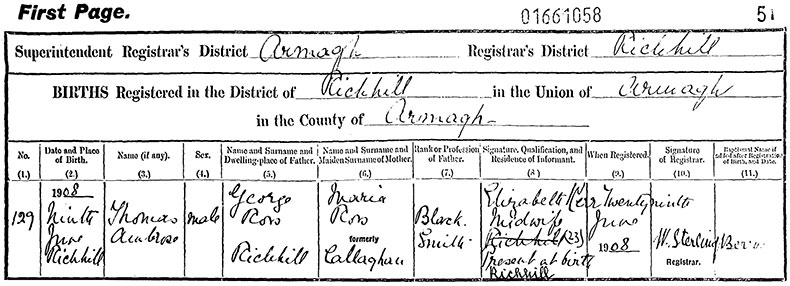 First Page. 01661058 51
Superintendent Registrar's District Armagh Registrar's District Richhill
BIRTHS Registered in the District of Richhill in the Union of Armagh
in the County of Armagh
No. Date and Place of Birth. Name (if any). Sex. Name and Surname and Dwelling-place of Father. Name and Surname and Maiden Surname of Mother. Rank or Profession of Father. Signature, Qualification, and Residence of Informant. When Registered. Signature of Registrar. Baptismal Name if added after Registration of Birth, and Date.
(1.) (2.) (3.) (4.) (5.) (6.) (7.) (8.) (9.) (10.) (11.)
129
1908
Ninth
June
Richhill
Thomas
Ambrose
male
George
Ross
Richhill
Maria
Ross
formerly
Callaghan
Black
Smith
Elizabeth Kerr
Midwife
Richhill (23)
Present at birth
Richhill
Twenty ninth
June
1908
W. Sterling
Registrar.